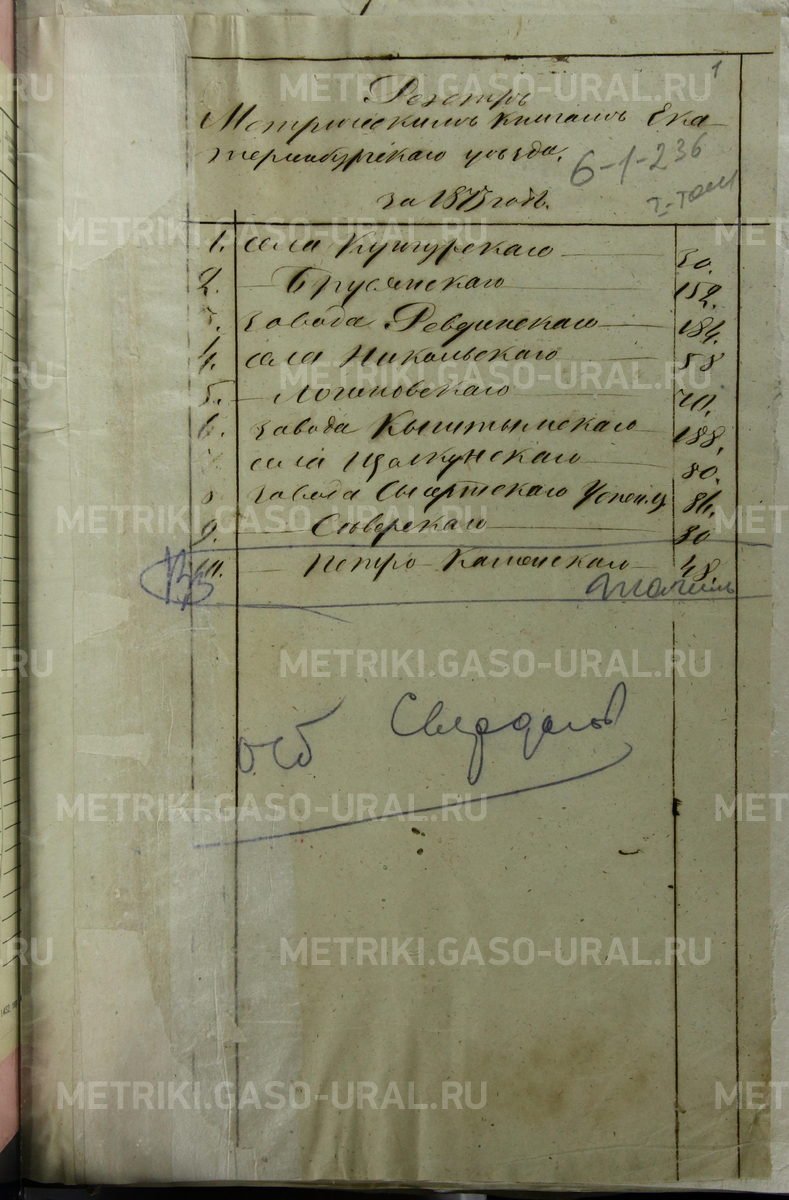 1
Реэстръ
Метрическимъ книгамъ Ека
теринбургскаго уѣзда.
6-1-236
за 1875 годъ.
1. села Кунгурскаго 50.
2. — Брусянскаго 152.
3. завода Ревдинскаго 184.
4. села Никольскаго 58
5. — Логиновскаго 70.
6. завода Кыштымскаго 188.
села Щолкунскаго 80.
8 завода Сысертскаго Успен.ц 86.
9. — Сѣверскаго 80
10. — Петро-Каменскаго 48.
METRIKI.GASO-URAL.RU